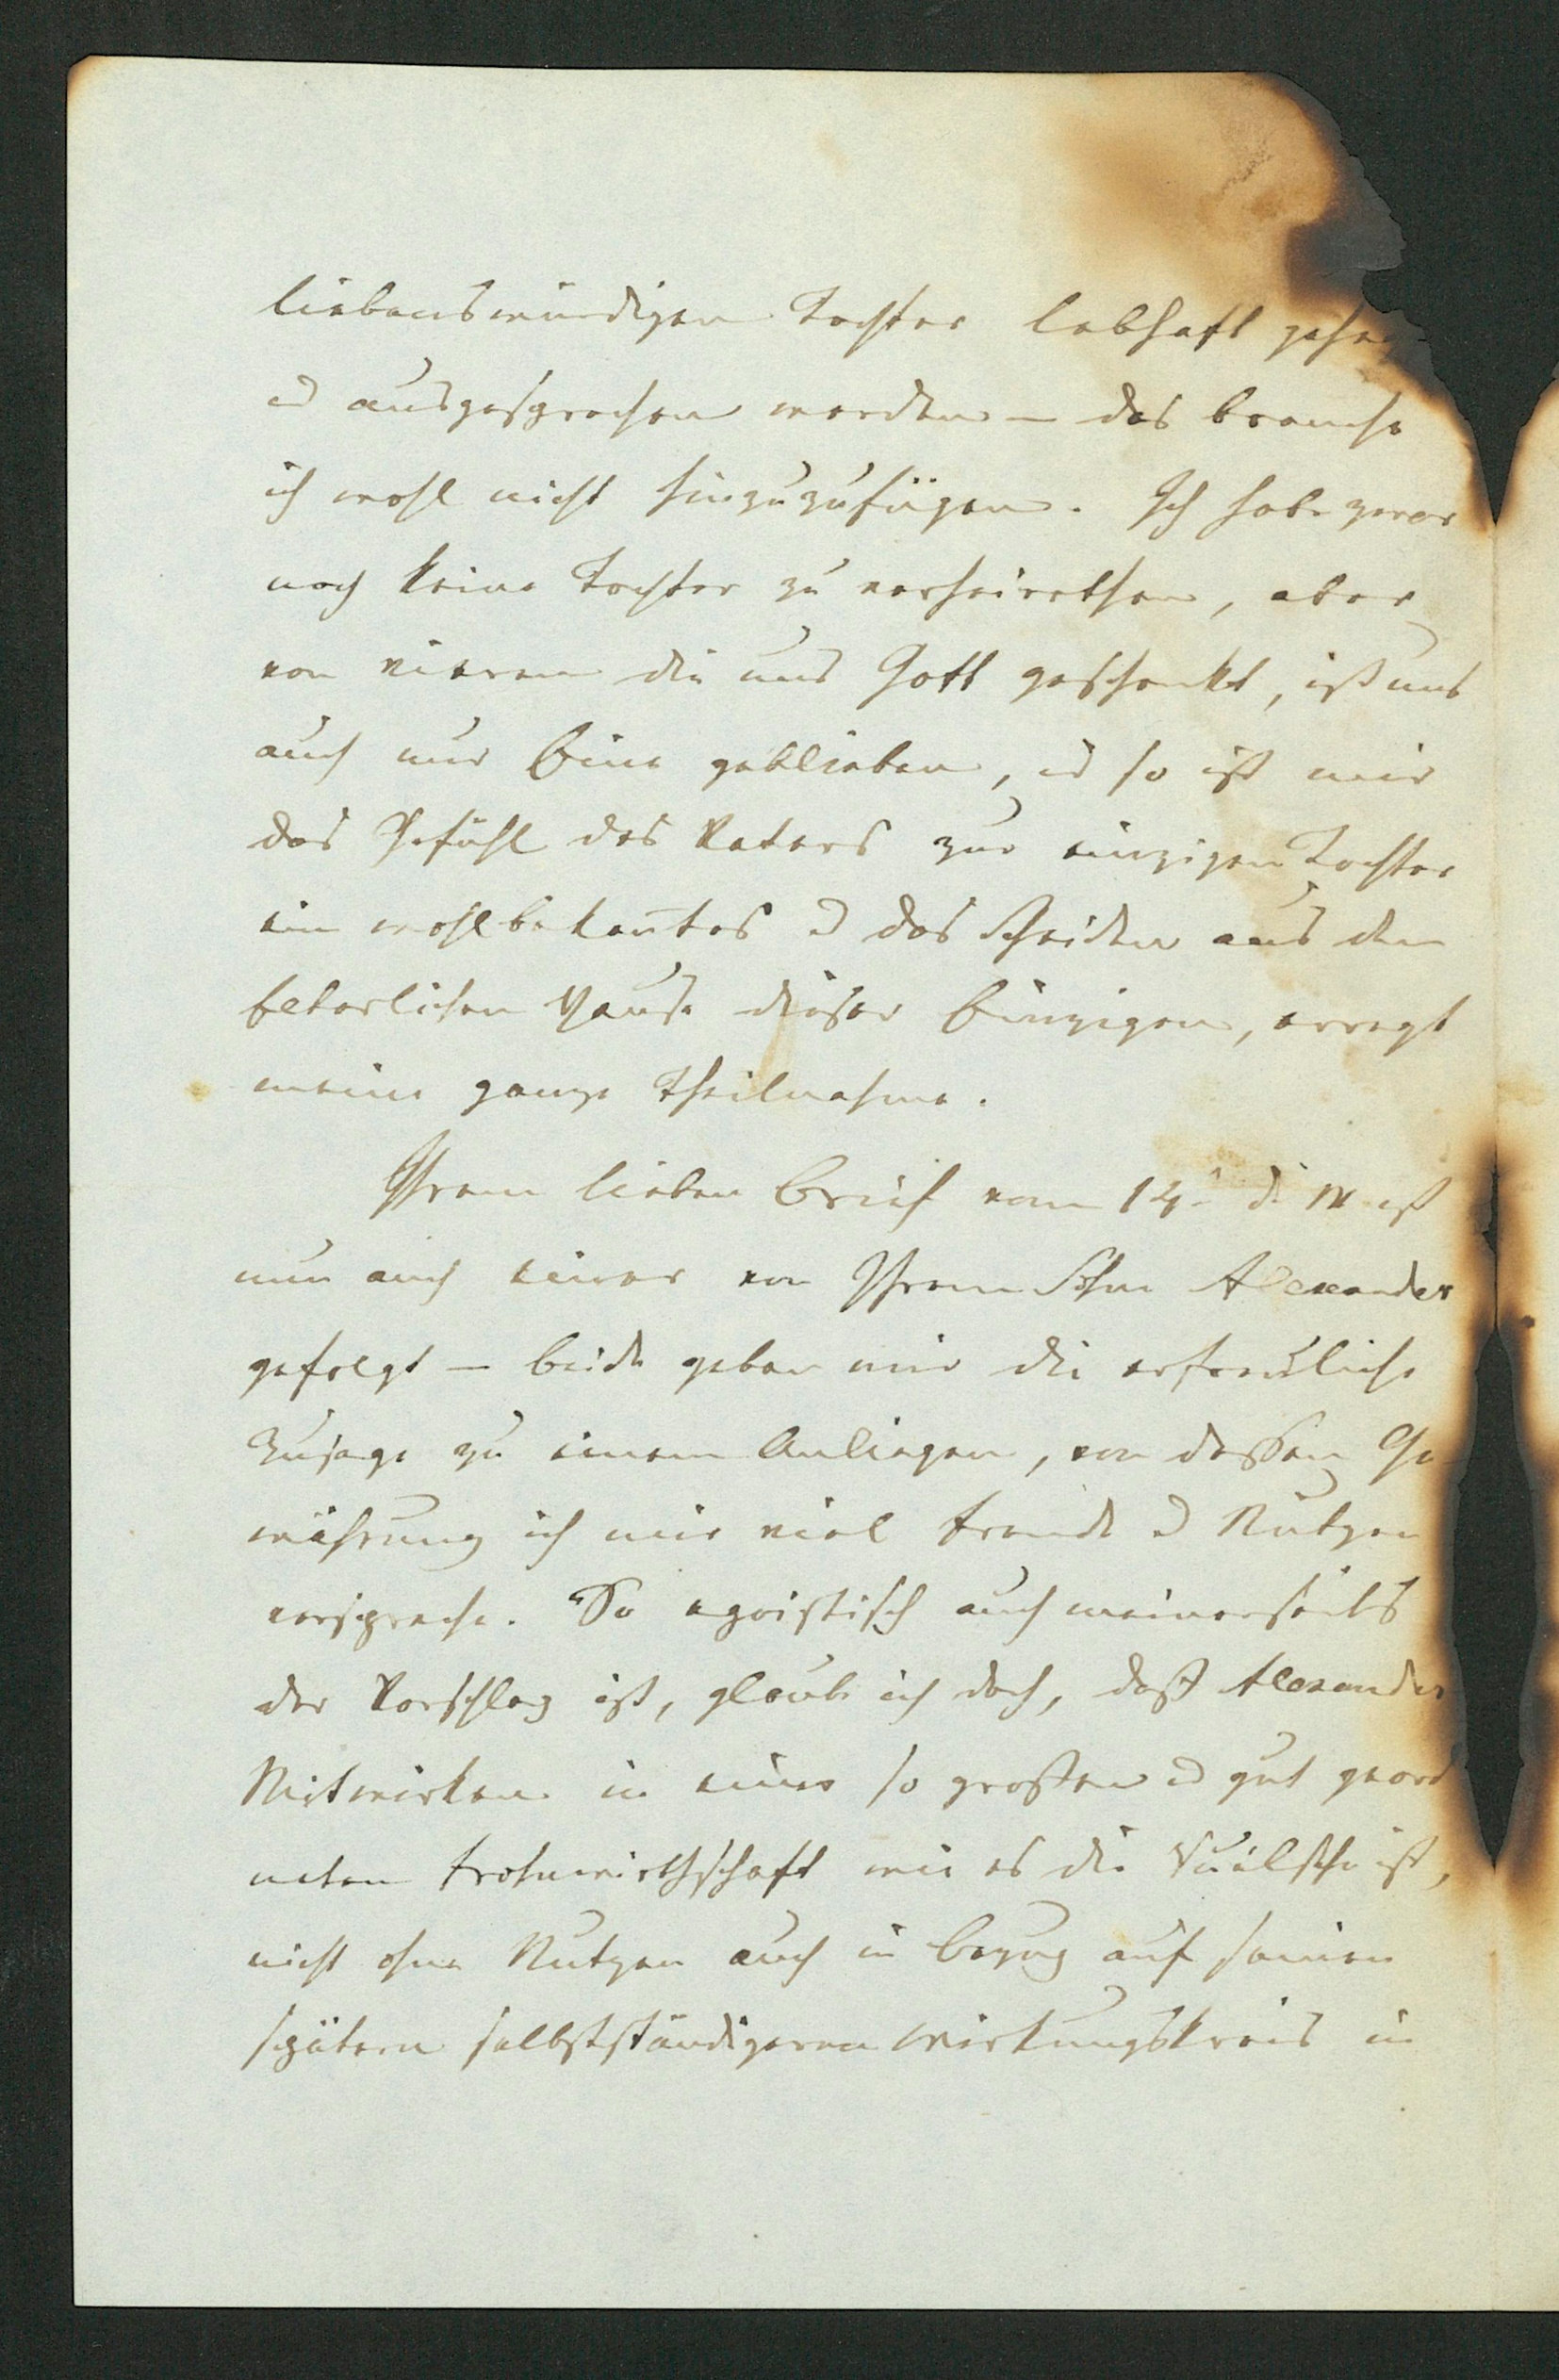 liebenswürdigen Tochter lebhaft geheg
u ausgesprochen werden – das brauche
ich wohl nicht hinzuzufügen. Ich habe zwar
noch keine Tochter zu verheirathen, aber
von vieren die uns Gott geschenkt, ist uns
auch nur Eine geblieben, u so ist mir
das Gefühl des Vaters zur einzigen Tochter
ein wohlbekan̄tes u das Scheiden aus dem
elterlichen Hause dieser Einzigen, erregt
meine ganze Theilnahme.
Ihrem lieben Brief vom 14 d. M ist
nun auch einer von Ihrem Sohn Alexander
gefolgt – beide geben mir die erfreuliche
Zusage zu einem Anliegen, von dessen Ge
währung ich mir viel Freude u Nutzen
verspreche. So egoistisch auch meinerseits
der Vorschlag ist, glaube ich doch, daß Alexander
Mitwirken in einer so großen u gut geord
neten Frohnwirthschaft wie es die ist,
nicht ohne Nutzen auch in Bezug auf seinen
spätern selbstständigeren Wirkungskreis in